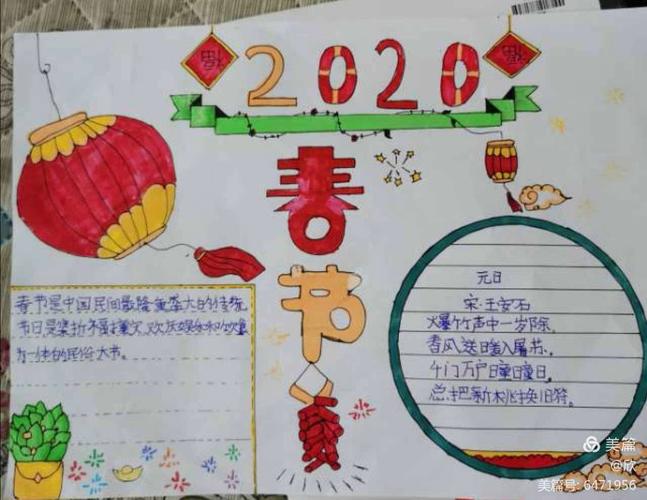 福
2020
福
春
节
春节是中国民间最隆重盛大的传统
节日是集祈
欢庆娱乐和饮食
为一体的民俗大节。
元日
宋·王安石
火爆竹声中一岁除,
春风送暖入屠苏,
千门万户曈曈日,
总把新桃换旧符。
美篇
@欣
美篇号:6471956